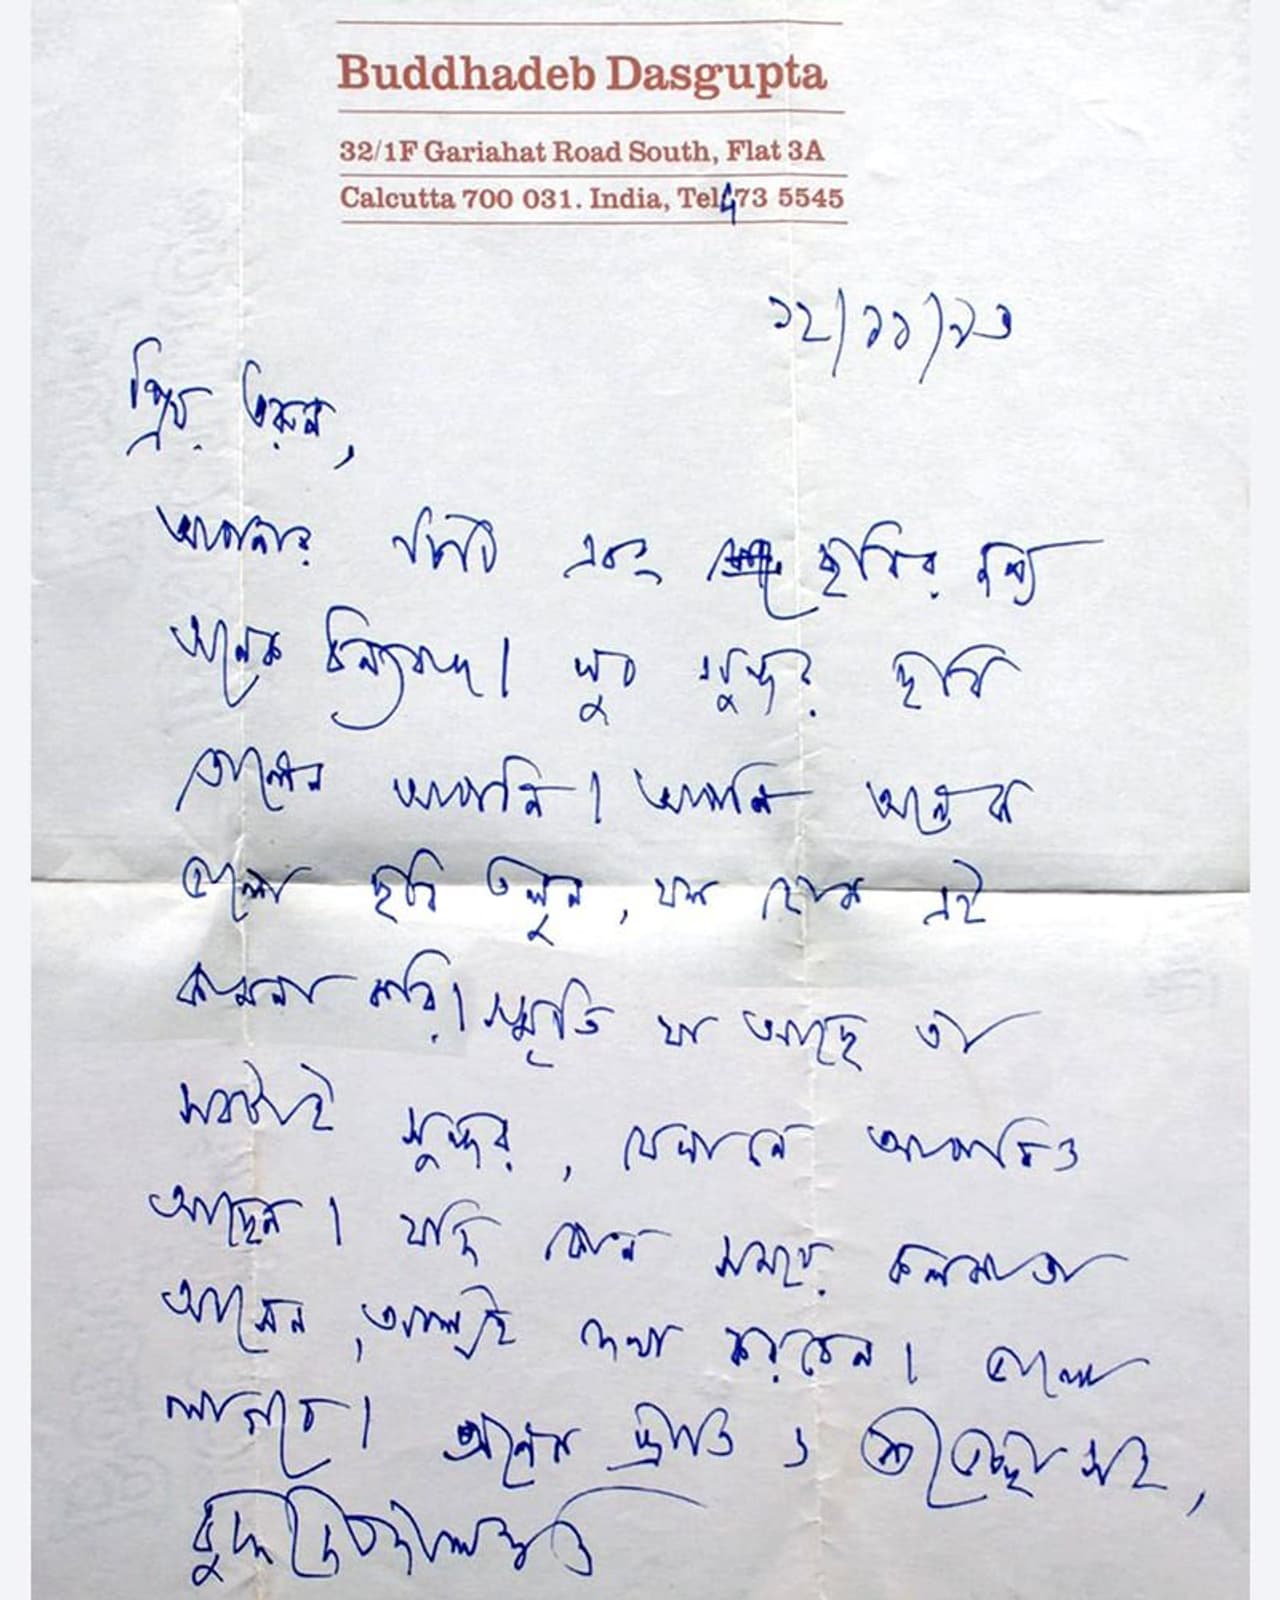 Buddhadeb Dasgupta
32/1F Gariahat Road South, Flat 3A
Calcutta 700 031. India, Tel 473 5545
১২/১১/৯৩
প্রিয় তরুন,
আপনার চিঠি এবং ছবির জন্য
অনেক ধন্যবাদ। খুব সুন্দর ছবি
তোলেন আপনি। আপনি অনেক
ভালো ছবি তুলুন, যশ হোক এই
কামনা করি। স্মৃতি যা আছে তা
সবটাই সুন্দর, যেখানে আপনিও
আছেন। যদি কোন সময়ে কলকাতা
আসেন, অবশ্যই দেখা করবেন। ভালো
লাগবে। অনেক প্রীতি ও শুভেচ্ছা সহ,
বুদ্ধদেব দাশগুপ্ত